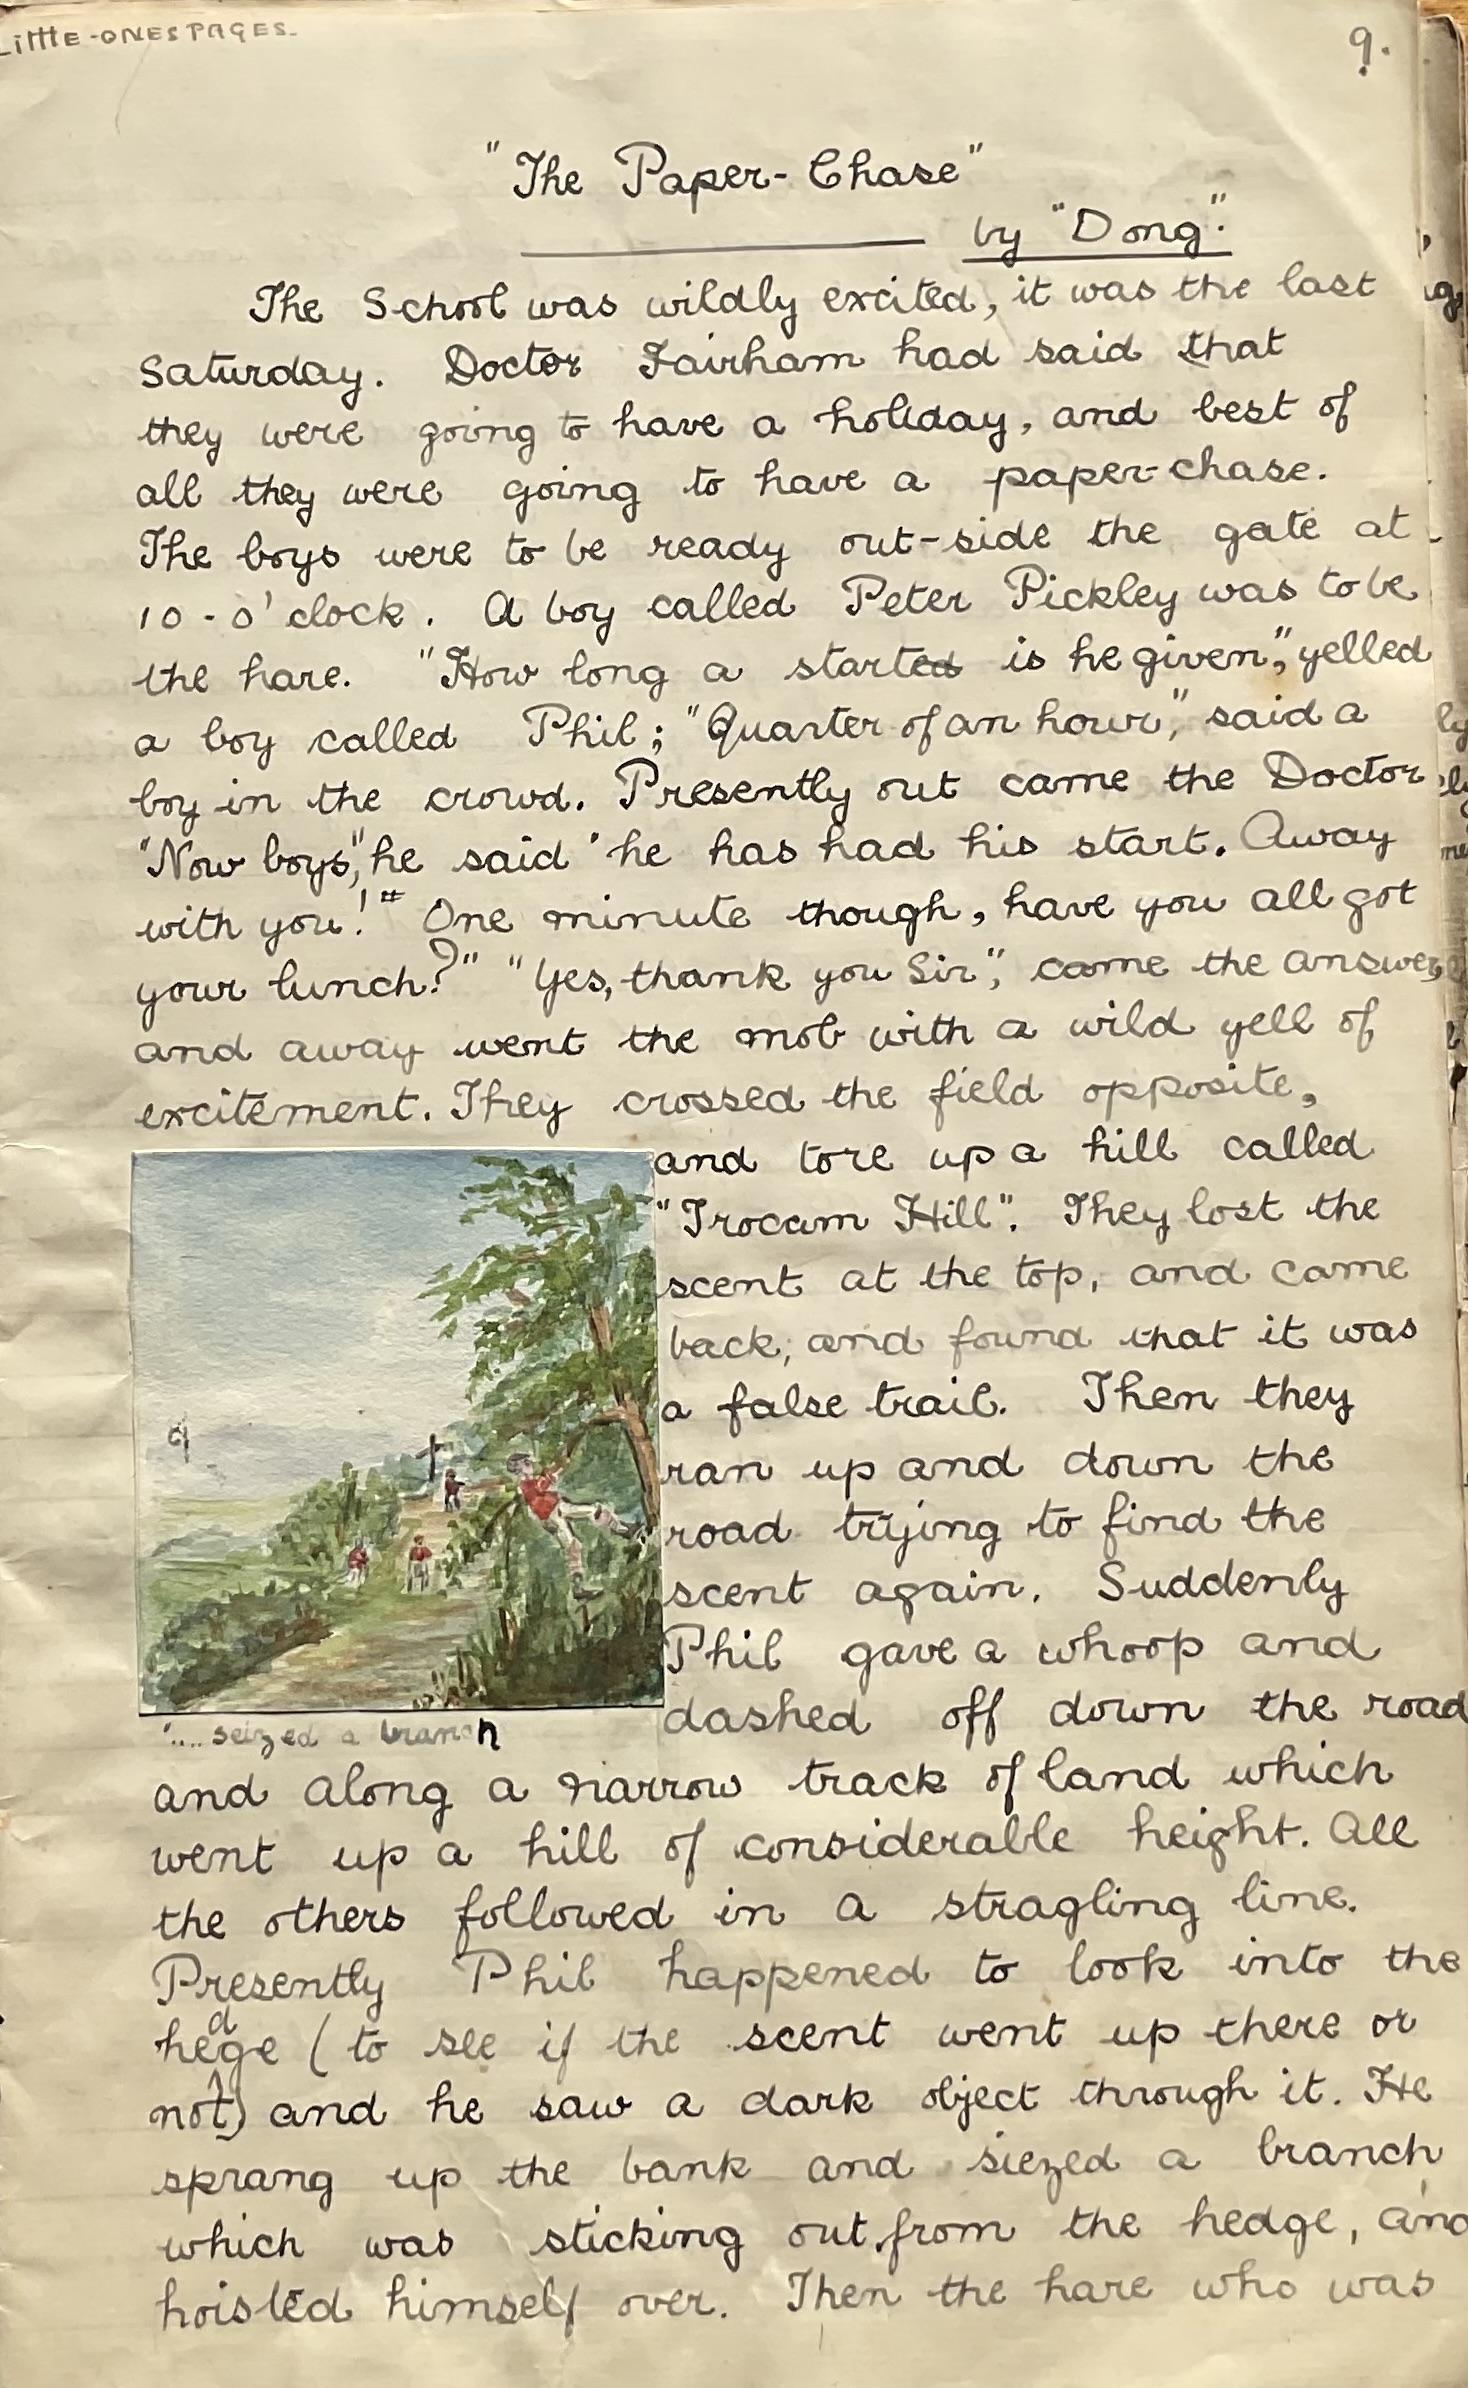 Little-ONES PAGES.
9.
"The Paper-Chase"
by "Dong".
The School was wildly excited, it was the last
Saturday. Doctor Fairham had said that
they were going to have a holiday, and best of
all they were going to have a paper-chase.
The boys were to be ready out-side the gate at
10-o'clock. A boy called Peter Pickley was to be
the hare. "How long a started is he given," yelled
a boy called Phil; "Quarter of an hour," said a
boy in the crowd. Presently out came the Doctor
"Now boys," he said "he has had his start. Away
with you!" One minute though, have you all got
your lunch?" "Yes, thank you Sir", came the answer,
and away went the mob with a wild yell of
excitement. They crossed the field opposite,
and tore up a hill called
"Trocam Hill". They lost the
scent at the top, and came
back, and found that it was
a false trail. Then they
ran up and down the
road trying to find the
scent again. Suddenly
Phil gave a whoop and
dashed off down the road
"....seized a branch
and along a narrow track of land which
went up a hill of considerable height. All
the others followed in a stragling line.
Presently Phil happened to look into the
hedge (to see if the scent went up there or
not) and he saw a dark object through it. He
sprang up the bank and siezed a branch
which was sticking out from the hedge, and
hoisted himself over. Then the hare who was